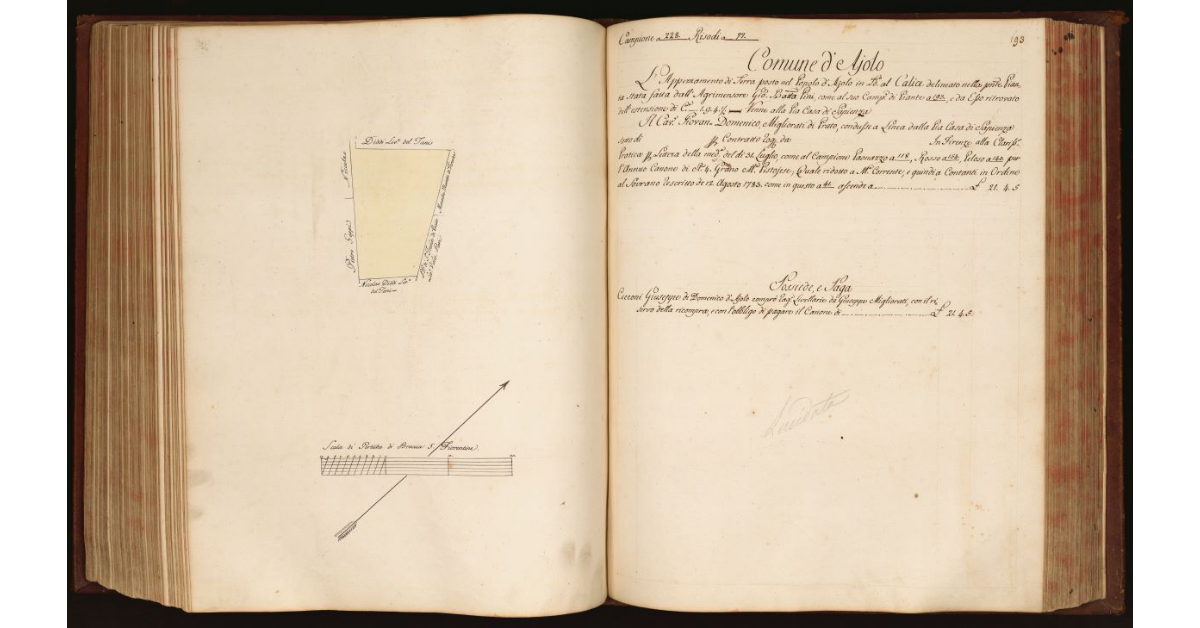 Ditta Lor.º del Tinic
Nicolai
Piero Geppi
Nicolai Ditta Lor.º
del Tinic
Scala di Pertiche di Braccia 5. Fiorentine
Campione a 228. Risedi a 77.
193
Comune d'Ajolo
L'Appezzamento di Terra posto nel Popolo d'Ajolo in L.º d.º al Calice delineato nella pnte Pian-
ta stata fatta dall'Agrimensore Gio. Batta Pini, come al suo Camp.e di Piante a 193. e da Esso ritrovato
dell'estensione di C. Venne alla Pia Casa di Sapienza
Il Cav.r Giovan Domenico Migliorati di Prato, condusse a Linea dalla Pia Casa di Sapienza
sotto di Contratto Rog. da In Firenze alla Clariss.
Pratica Segreta della med. del dì 31. Luglio, come al Campione Paonazzo a 118, Rosso a Peloso a per
l'Annuo Canone di St. 4. Grano M. Pistojese, Quale ridotto a M. Corrente, e quindi a Contanti in Ordine
al Sovrano descritto de 12. Agosto 1783. come in questo a ascende a £ 21. 4. 5
Possiede, e Paga
Ciceroni Giuseppe di Domenico d'Ajolo comprò Livellario da Giuseppe Migliorati, con il ri-
servo della ricompra, e con l'obbligo di pagare il Canone di £ 21. 4. 5